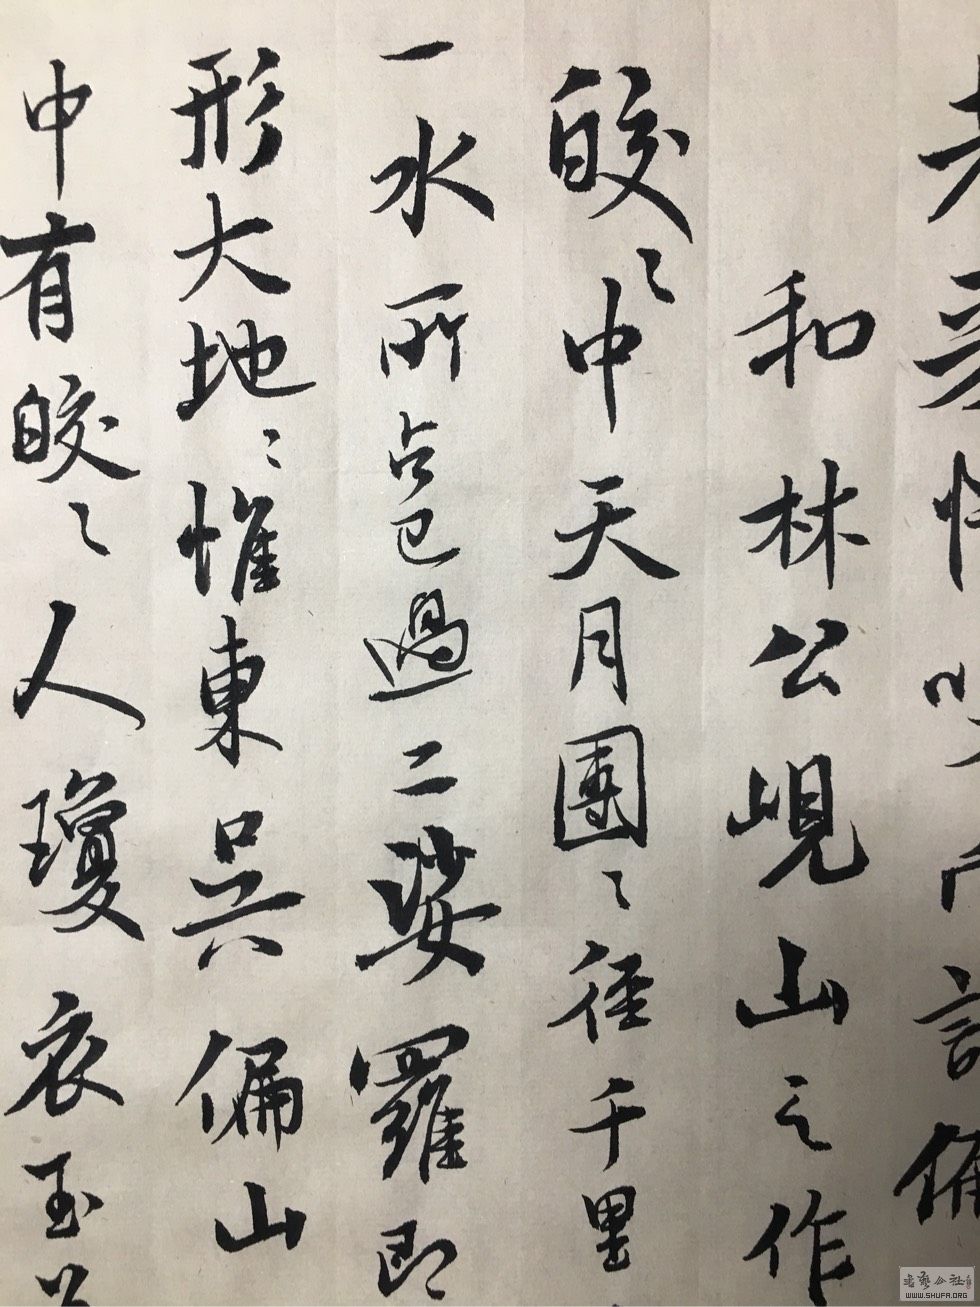 和林公峴山之作
皎々中天月團々徑千里
一水所占已過二娑羅即
形大地々惟東吳偏山
中有皎々人瓊衣玉
書藝公社
WWW.SHUFA.ORG